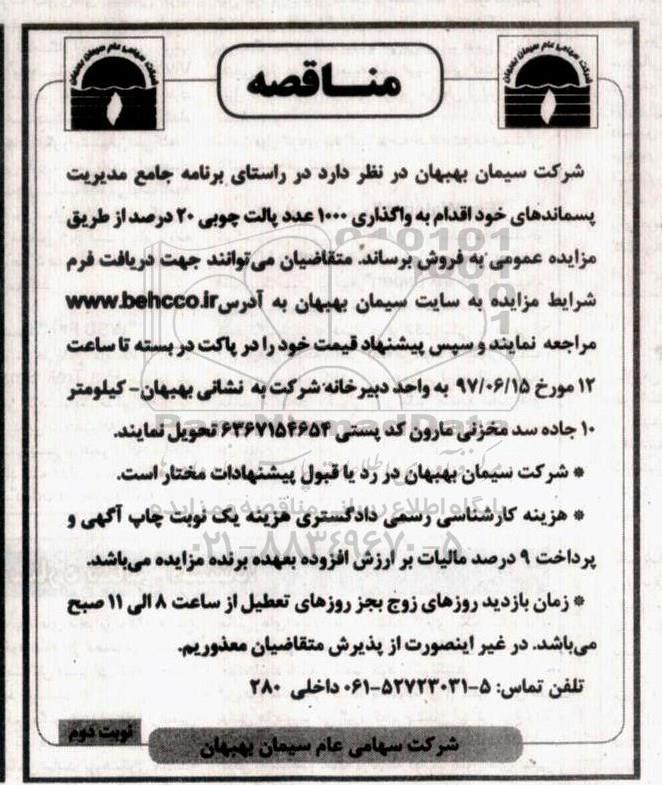 شرکت سهامی عام سیمان بهبهان
مناقصه
شرکت سهامی عام سیمان بهبهان
شرکت سیمان بهبهان در نظر دارد در راستای برنامه جامع مدیریت
پسماندهای خود اقدام به واگذاری ۱۰۰۰ عدد پالت چوبی ۲۰ درصد از طریق
مزایده عمومی به فروش برساند. متقاضیان می‌توانند جهت دریافت فرم
شرایط مزایده به سایت سیمان بهبهان به آدرس www.behcco.ir
مراجعه نمایند و سپس پیشنهاد قیمت خود را در پاکت در بسته تا ساعت
۱۲ مورخ ۹۷/۰۶/۱۵ به واحد دبیرخانه شرکت به نشانی بهبهان- کیلومتر
۱۰ جاده سد مخزنی مارون کد پستی ۶۳۶۷۱۵۴۶۵۴ تحویل نمایند.
* شرکت سیمان بهبهان در رد یا قبول پیشنهادات مختار است.
* هزینه کارشناسی رسمی دادگستری هزینه یک نوبت چاپ آگهی و
پرداخت ۹ درصد مالیات بر ارزش افزوده بعهده برنده مزایده می‌باشد.
* زمان بازدید روزهای زوج بجز روزهای تعطیل از ساعت ۸ الی ۱۱ صبح
می‌باشد. در غیر اینصورت از پذیرش متقاضیان معذوریم.
تلفن تماس: ۵-۵۲۷۲۳۰۳۱-۰۶۱ داخلی ۲۸۰
نوبت دوم
شرکت سهامی عام سیمان بهبهان
پایگاه اطلاع رسانی مناقصه و مزایده
۰۲۱-۸۸۳۴۹۶۷۰-۵